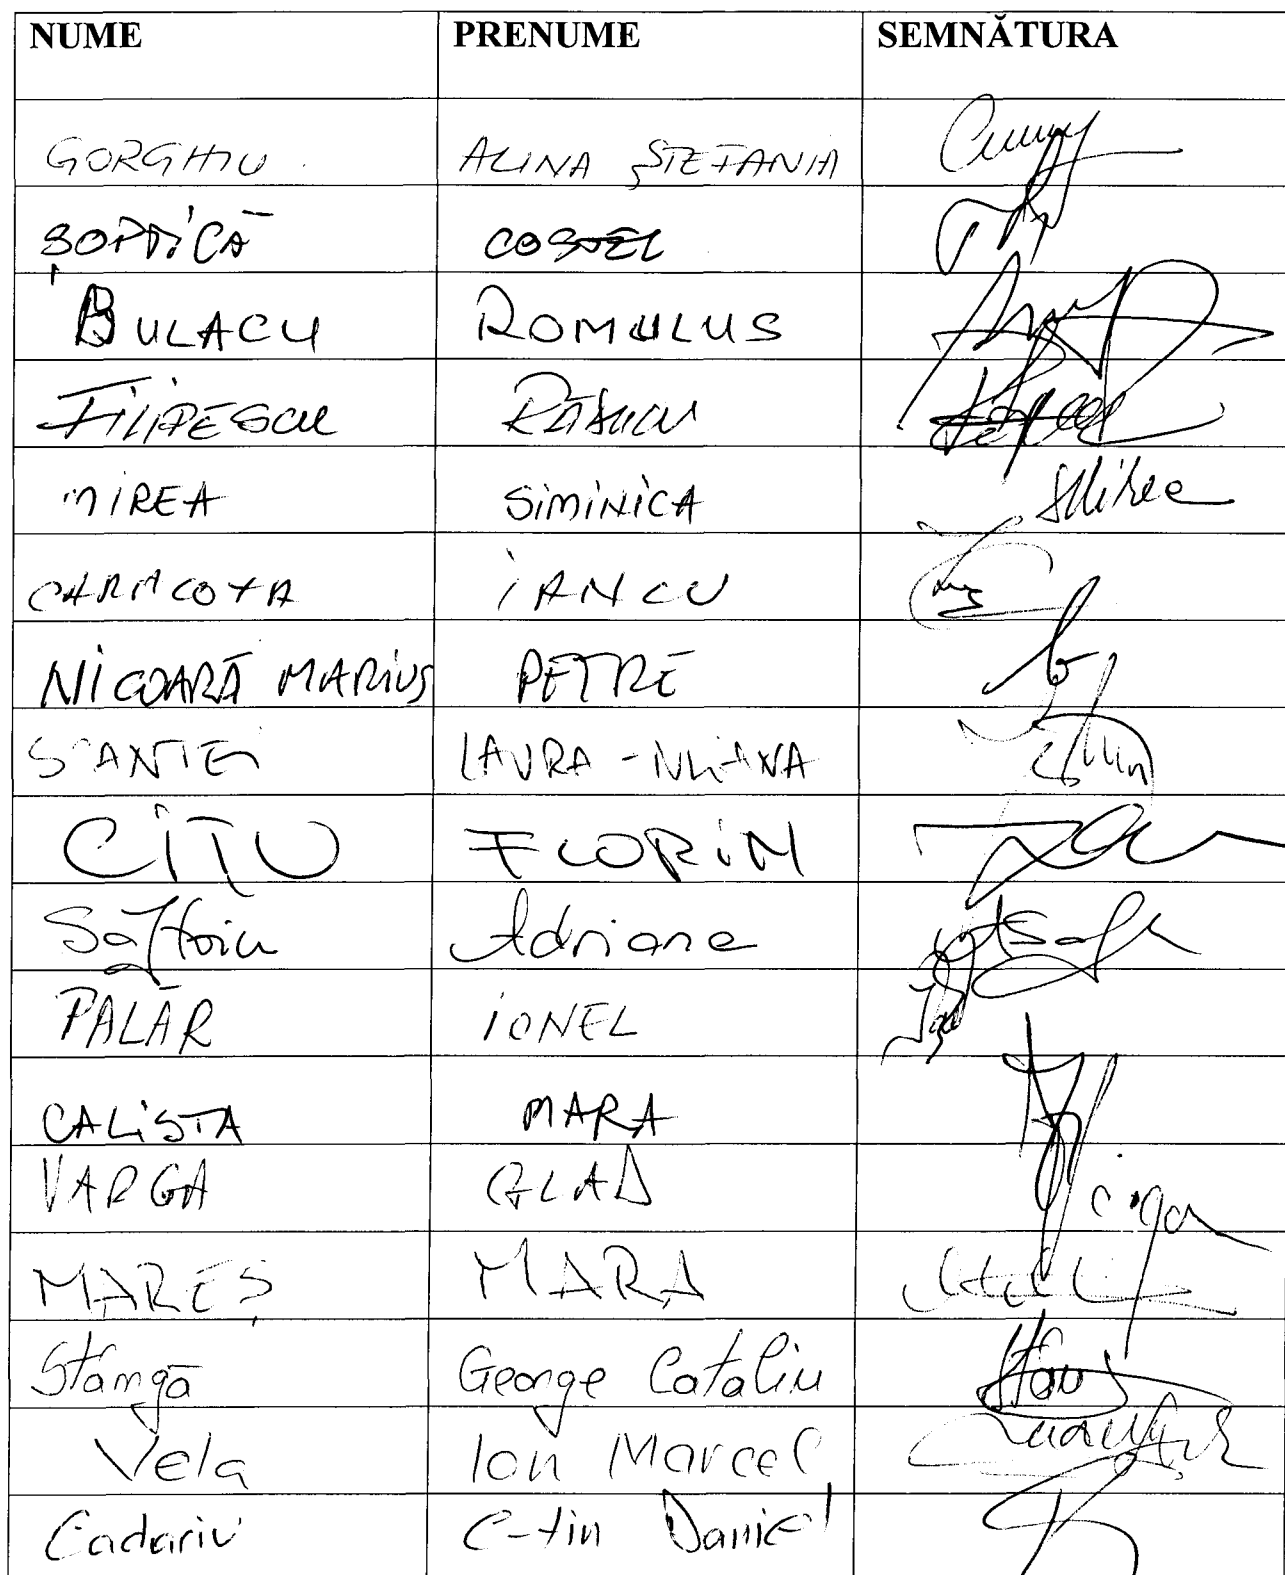 NUME PRENUME SEMNĂTURA
GORGHIU ALINA ȘTEFANIA
ȘOPTICĂ COSTEL
BULACU ROMULUS
FILIPESCU RĂDUCU
MIREA SIMINICA SMirea
CARACOTA IANCU
NICOARĂ MARIUS PETRE
SCANTEI LAURA-IULIANA
CÎȚU FLORIN
Saftoiu Adriana
PALĂR IONEL
CALISTA MARA
VARGA GLAD
MAREȘ MARA
Stângă George Catalin
Vela Ion Marcel
Cadariu C-tin Daniel